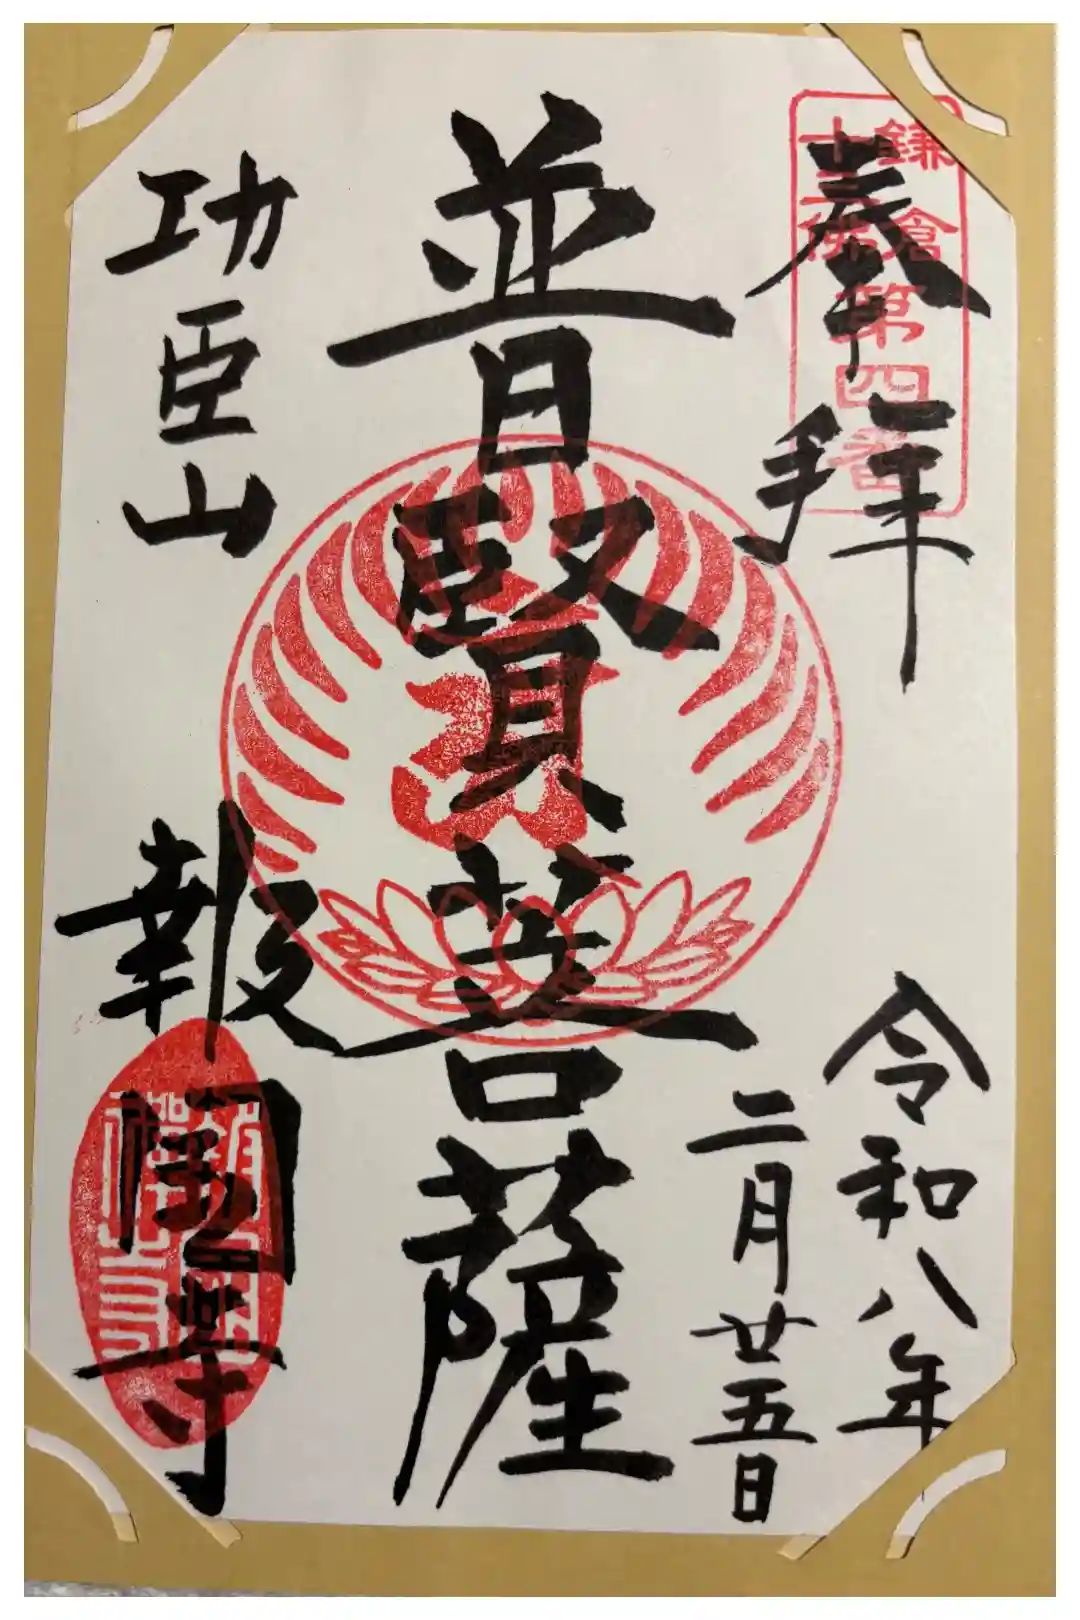 奉拝
鎌倉
十三佛
第四番
令和八年
二月廿五日
普賢菩薩
功臣山
報國寺